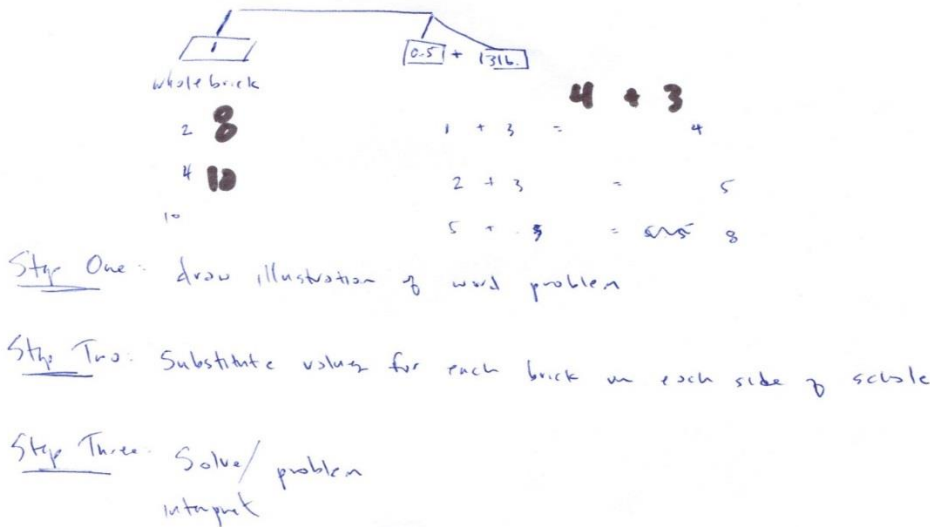 1 0.5 + 3 lb.
whole brick
4 + 3
2 8 1 + 3 = 4
4 10 2 + 3 = 5
10 5 + 3 = 8
Step One: draw illustration of word problem
Step Two: Substitute values for each brick on each side of schale
Step Three: Solve/ problem
interpret